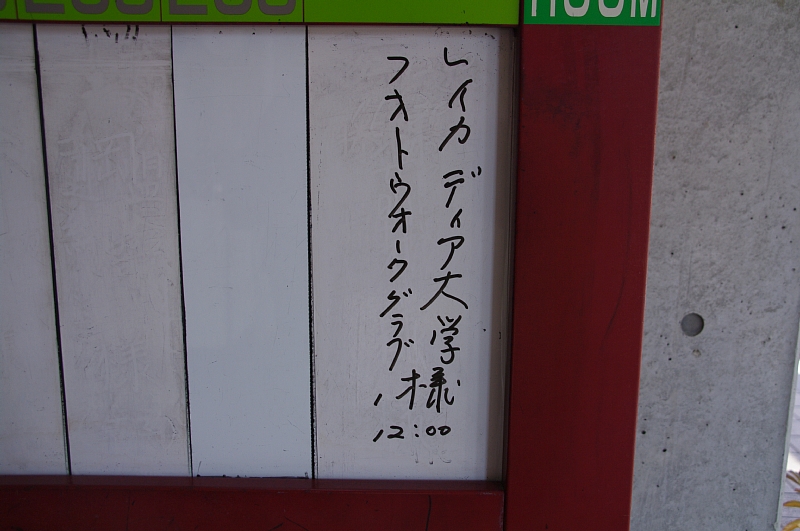 ROOM
レイカディア大学様
フオトウオークグラブ
12:00